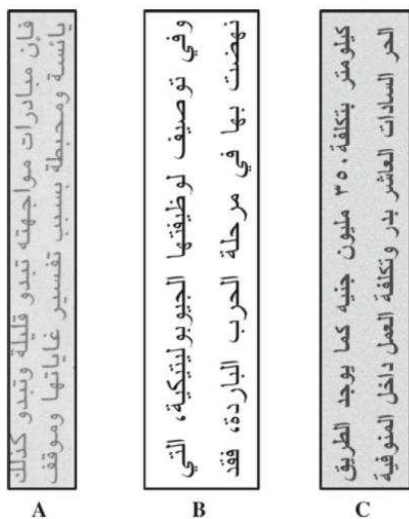 فإن مبادرات مواجهته تبدو قليلة وتبدو كذلك
يائسة ومحبطة بسبب تفسير غاياتها وموقف
A
وفي توصيف لوظيفتها الجيوبوليتيكية، التي
نهضت بها في مرحلة الحرب الباردة، فقد
B
كيلومتر بتكلفة ٣٥٠ مليون جنيه كما يوجد الطريق
الحر السادات العاشر بدر وتكلفة العمل داخل المنوفية
C